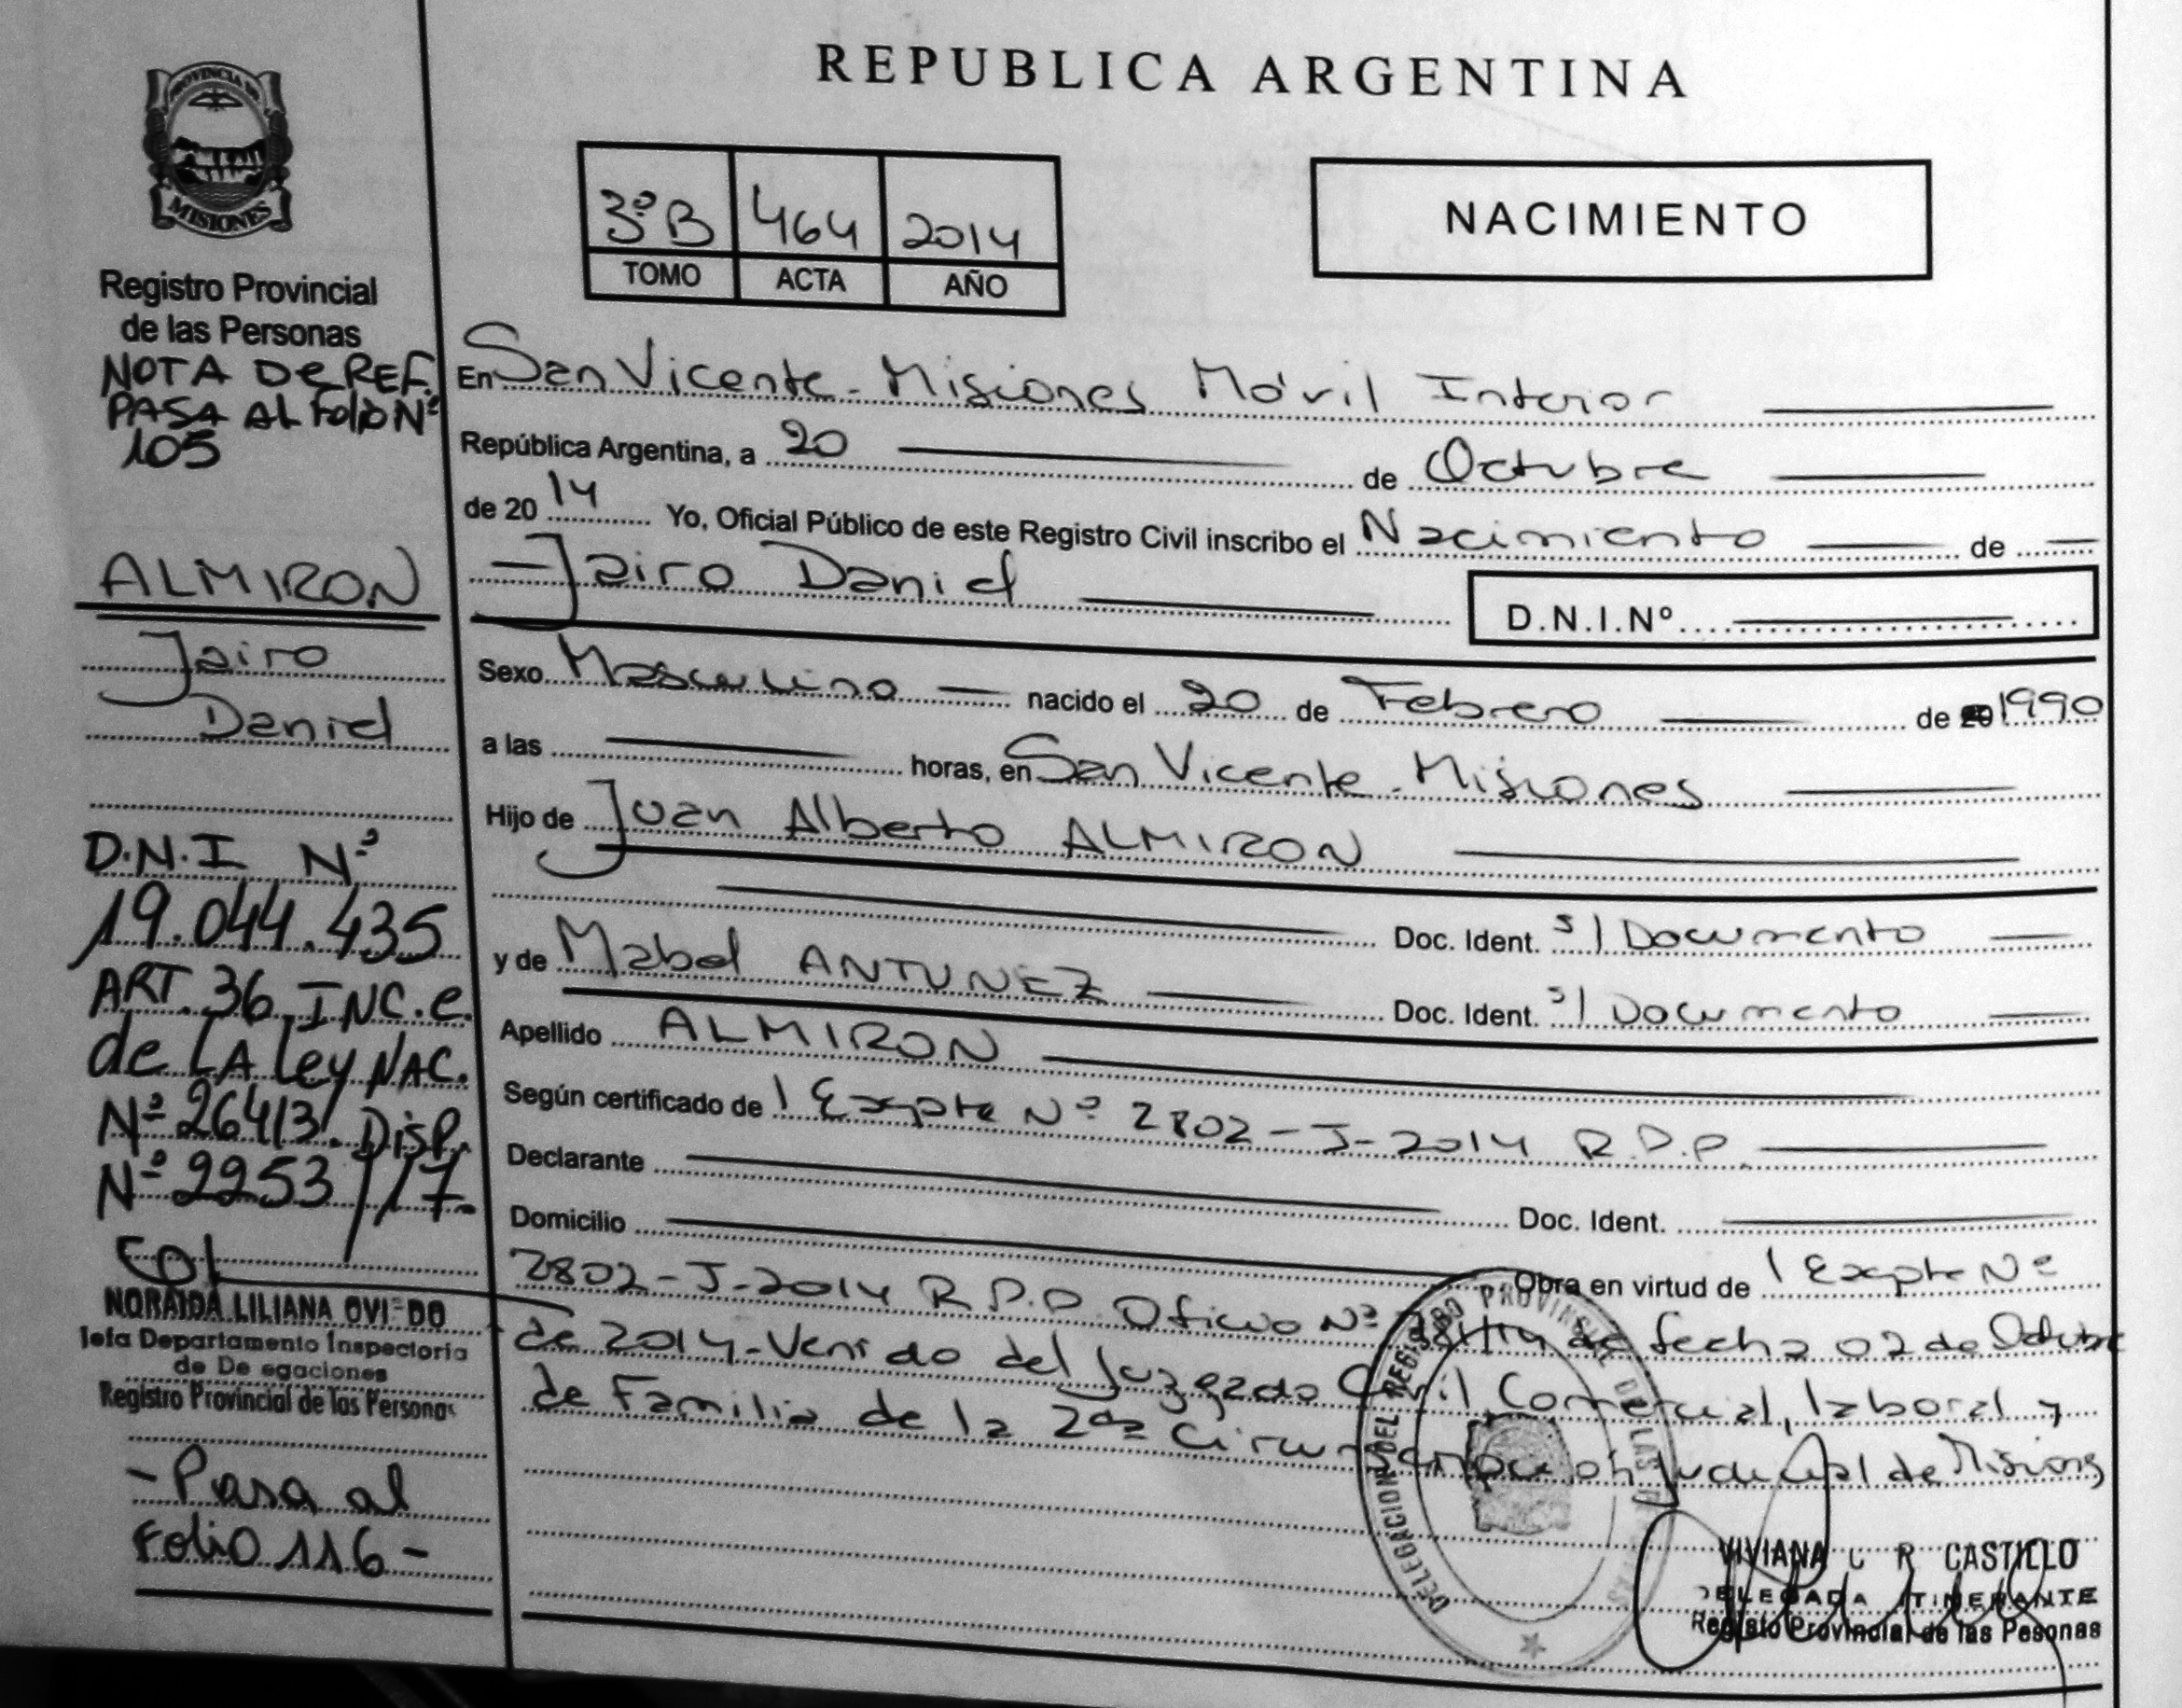 REPUBLICA ARGENTINA
PROVINCIA DE
MISIONES
Registro Provincial
de las Personas
NOTA De REF.
PASA AL Folio Nº
105
ALMIRON
Jairo
Daniel
D.N.I Nº
19.044.435
ART. 36 INC.e.
de LA Ley NAC.
Nº 26413. Disp.
Nº 2253/17-
NORAIDA LILIANA OVIEDO
Jefa Departamento Inspectoria
de De egaciones
Registro Provincial de las Personas
- Pasa al
Folio 116 -
3º B 464 2014
TOMO ACTA AÑO
NACIMIENTO
En San Vicente - Misiones Móvil Interior
República Argentina, a 20 de Octubre
de 20 14 Yo, Oficial Público de este Registro Civil inscribo el Nacimiento de
Jairo Daniel D.N.I.Nº
Sexo Masculino nacido el 20 de Febrero de 1990
a las horas, en San Vicente - Misiones
Hijo de Juan Alberto ALMIRON
Doc. Ident. s/ Documento
y de Mabel ANTUNEZ Doc. Ident. s/ Documento
Apellido ALMIRON
Según certificado de / Expte Nº 2802-J-2014 R.P.P.
Declarante Doc. Ident.
Domicilio Obra en virtud de / Expte Nº
2802-J-2014 R.P.P. Oficio Nº de fecha 02 de Octubre
de 2014 - Venido del Juzgado Civil, Comercial, laboral y
de Familia de la 2da Circunscripcion Judicial de Misiones
DELEGACION DEL REGISTRO PROVINCIAL DE LAS
VIVIANA R CASTILLO
DELEGADA ITINERANTE
Registo Provincial de las Pesonas